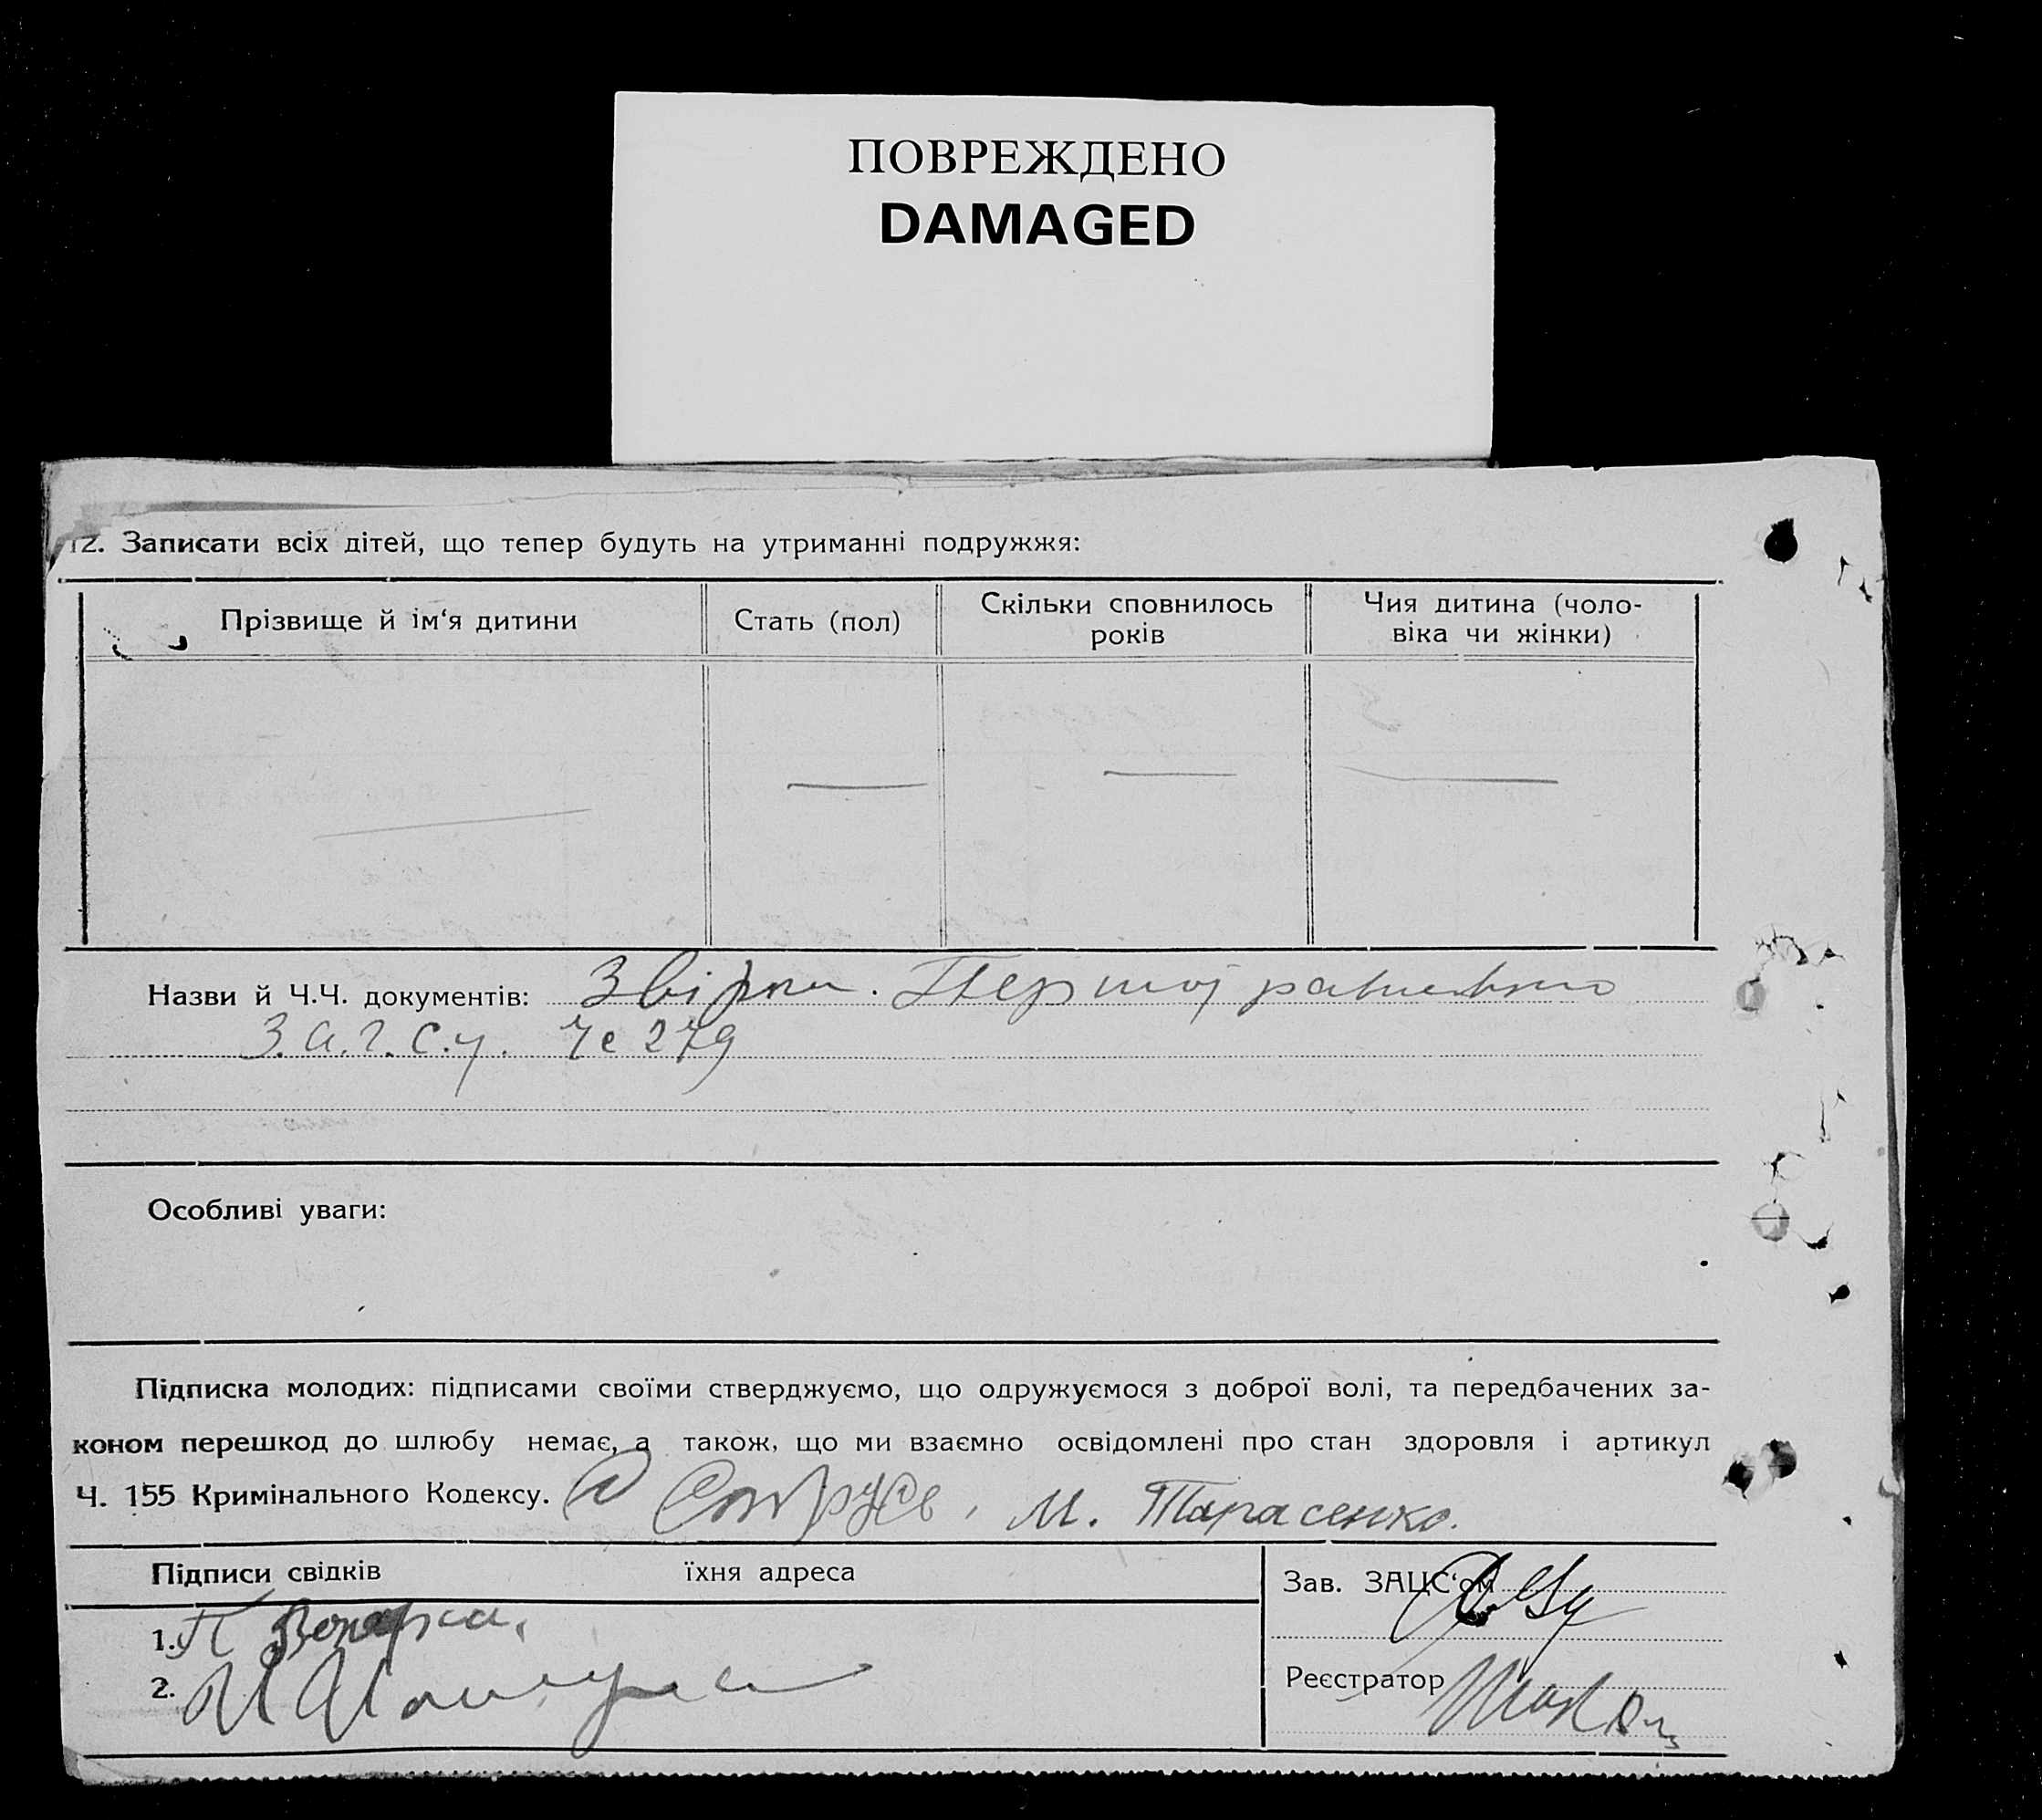 ПОВРЕЖДЕНО
DAMAGED
12. Записати всіх дітей, що тепер будуть на утриманні подружжя:
Прізвище й ім‘я дитини
Стать (пол)
Скільки сповнилось
років
Чия дитина (чоло-
віка чи жінки)
Назви й Ч.Ч. документів:
З.А.Г.С.у. Че 279
Особливі уваги:
Підписка молодих: підписами своїми стверджуємо, що одружуємося з доброї волі, та передбачених за-
коном перешкод до шлюбу немає, а також, що ми взаємно освідомлені про стан здоровля і артикул
Ч. 155 Кримінального Кодексу. М. Тарасенко.
Підписи свідків їхня адреса
Зав. ЗАЦС‘ом
1. П
2.
Реєстратор